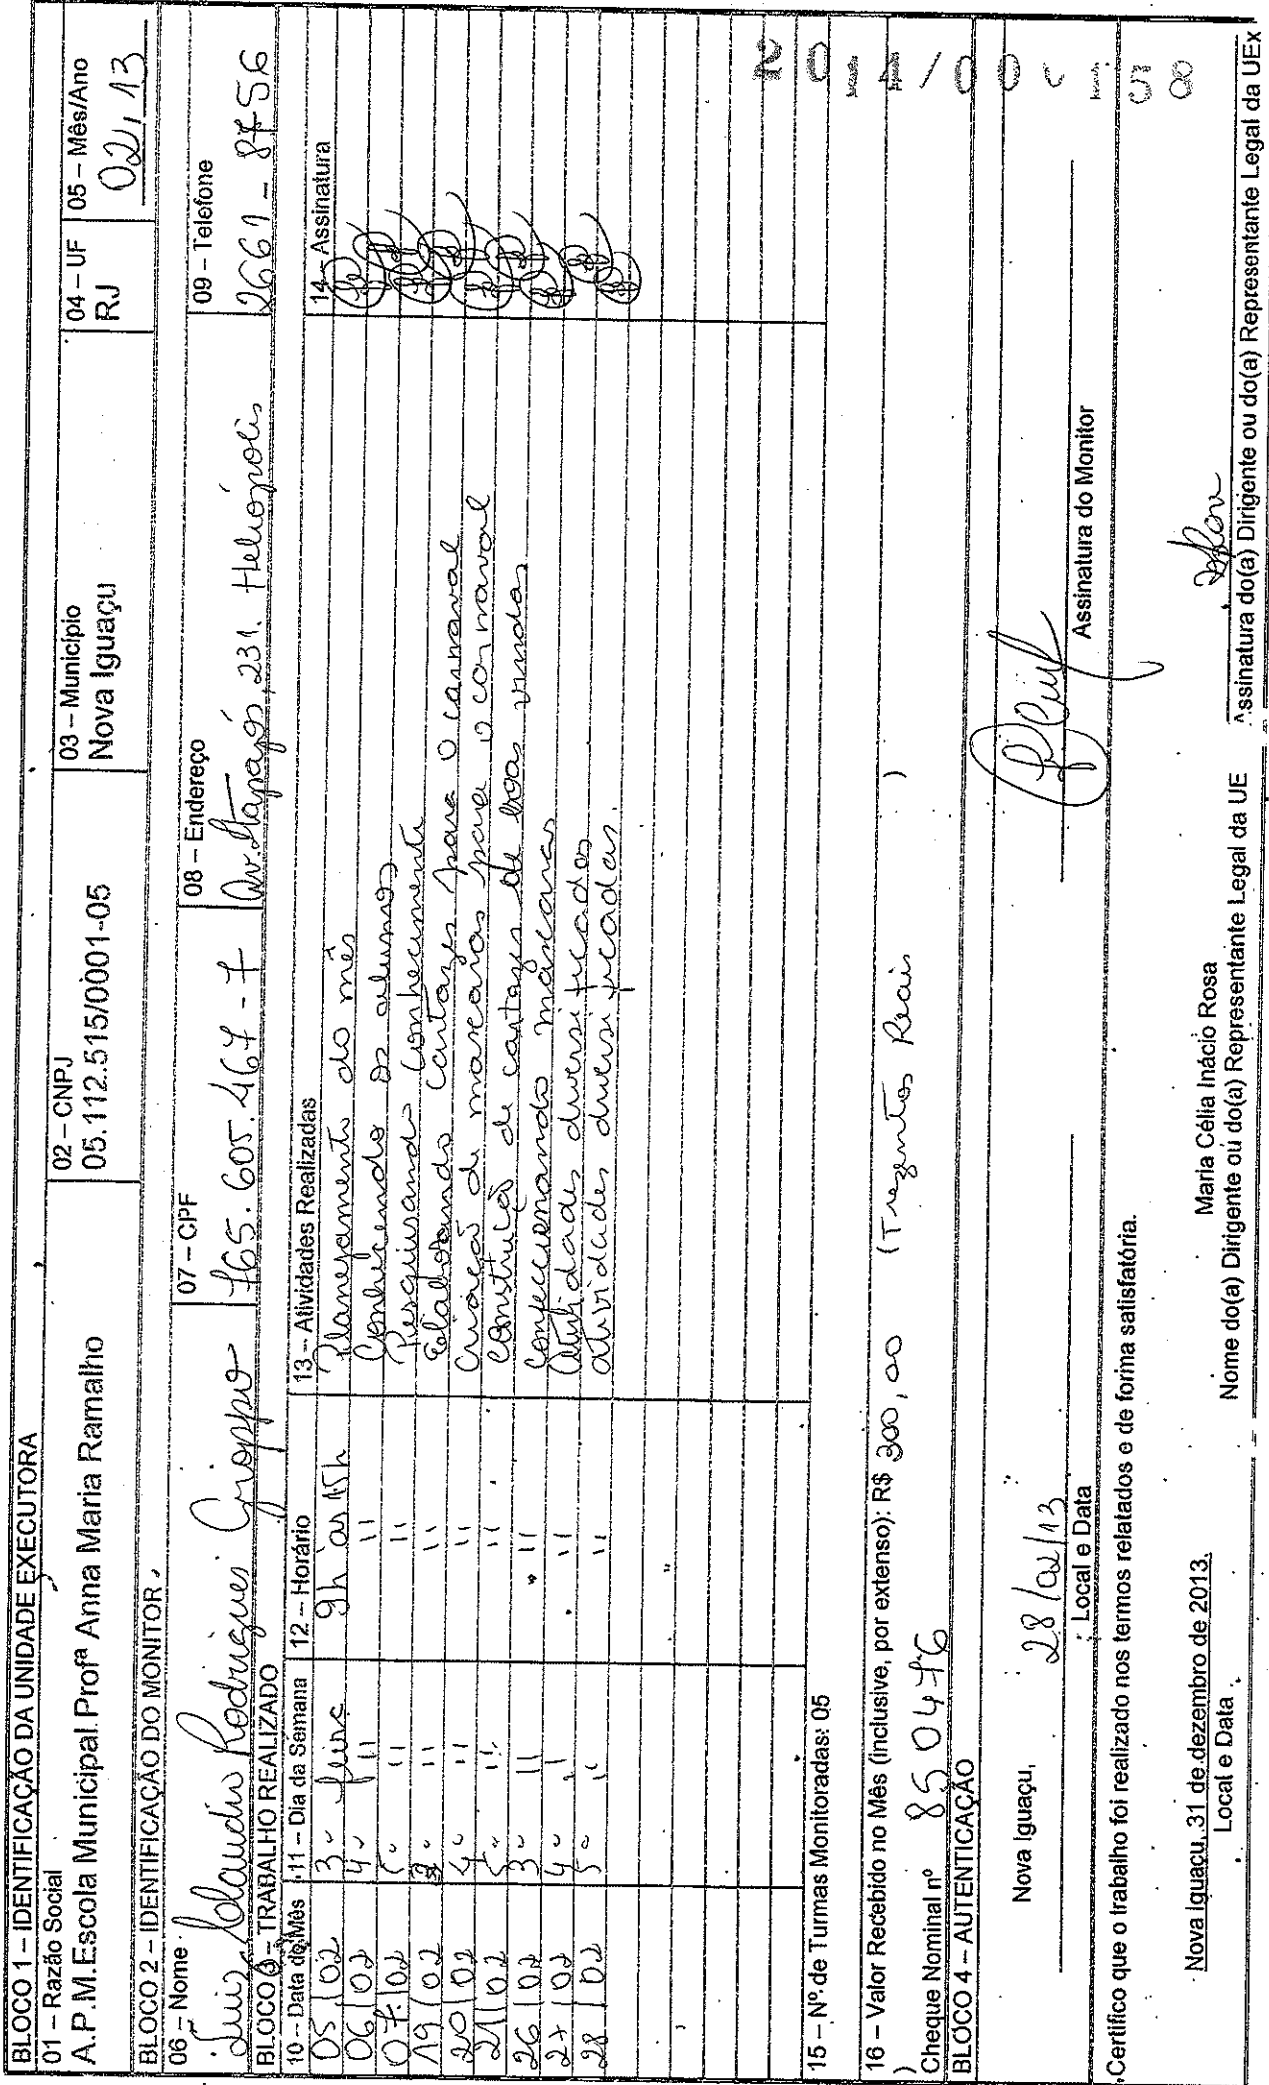 BLOCO 1 – IDENTIFICAÇÃO DA UNIDADE EXECUTORA
01 – Razão Social
A.P.M.Escola Municipal Profª Anna Maria Ramalho
02 – CNPJ
05.112.515/0001-05
03 – Município
Nova Iguaçu
04 – UF
RJ
05 – Mês/Ano
02, 13
BLOCO 2 – IDENTIFICAÇÃO DO MONITOR
06 – Nome
Luiz Claudio Rodrigues Grioppo
07 – CPF
765.605.467-7
08 – Endereço
Av. Itapajós, 231. Heliópolis
09 – Telefone
2661-8756
BLOCO 3 – TRABALHO REALIZADO
10 – Data do Mês 11 – Dia da Semana 12 – Horário 13 – Atividades Realizadas 14 – Assinatura
05/02 3ª feira 9h às 15h Planejamento do mês
06/02 4ª " " Conhecendo os alunos
07/02 5ª " " Pesquisando conhecimento
19/02 3ª " " Elaborando cartazes para o carnaval
20/02 4ª " " Criação de mascaras para o carnaval
21/02 5ª " " Construção de cartazes de boas vindas
26/02 3ª " " Confeccionando máscaras
27/02 4ª " " Atividades diversificadas
28/02 5ª " " atividades diversificadas.
15 – Nº.de Turmas Monitoradas: 05
16 – Valor Recebido no Mês (inclusive, por extenso): R$ 300,00 (Trezentos Reais )
)
Cheque Nominal nº 850476
BLOCO 4 – AUTENTICAÇÃO
Nova Iguaçu, 28/02/13
Local e Data
Assinatura do Monitor
Certifico que o trabalho foi realizado nos termos relatados e de forma satisfatória.
Nova Iguaçu, 31 de dezembro de 2013.
Local e Data
Maria Célia Inácio Rosa
Nome do(a) Dirigente ou do(a) Representante Legal da UE
Assinatura do(a) Dirigente ou do(a) Representante Legal da UEx